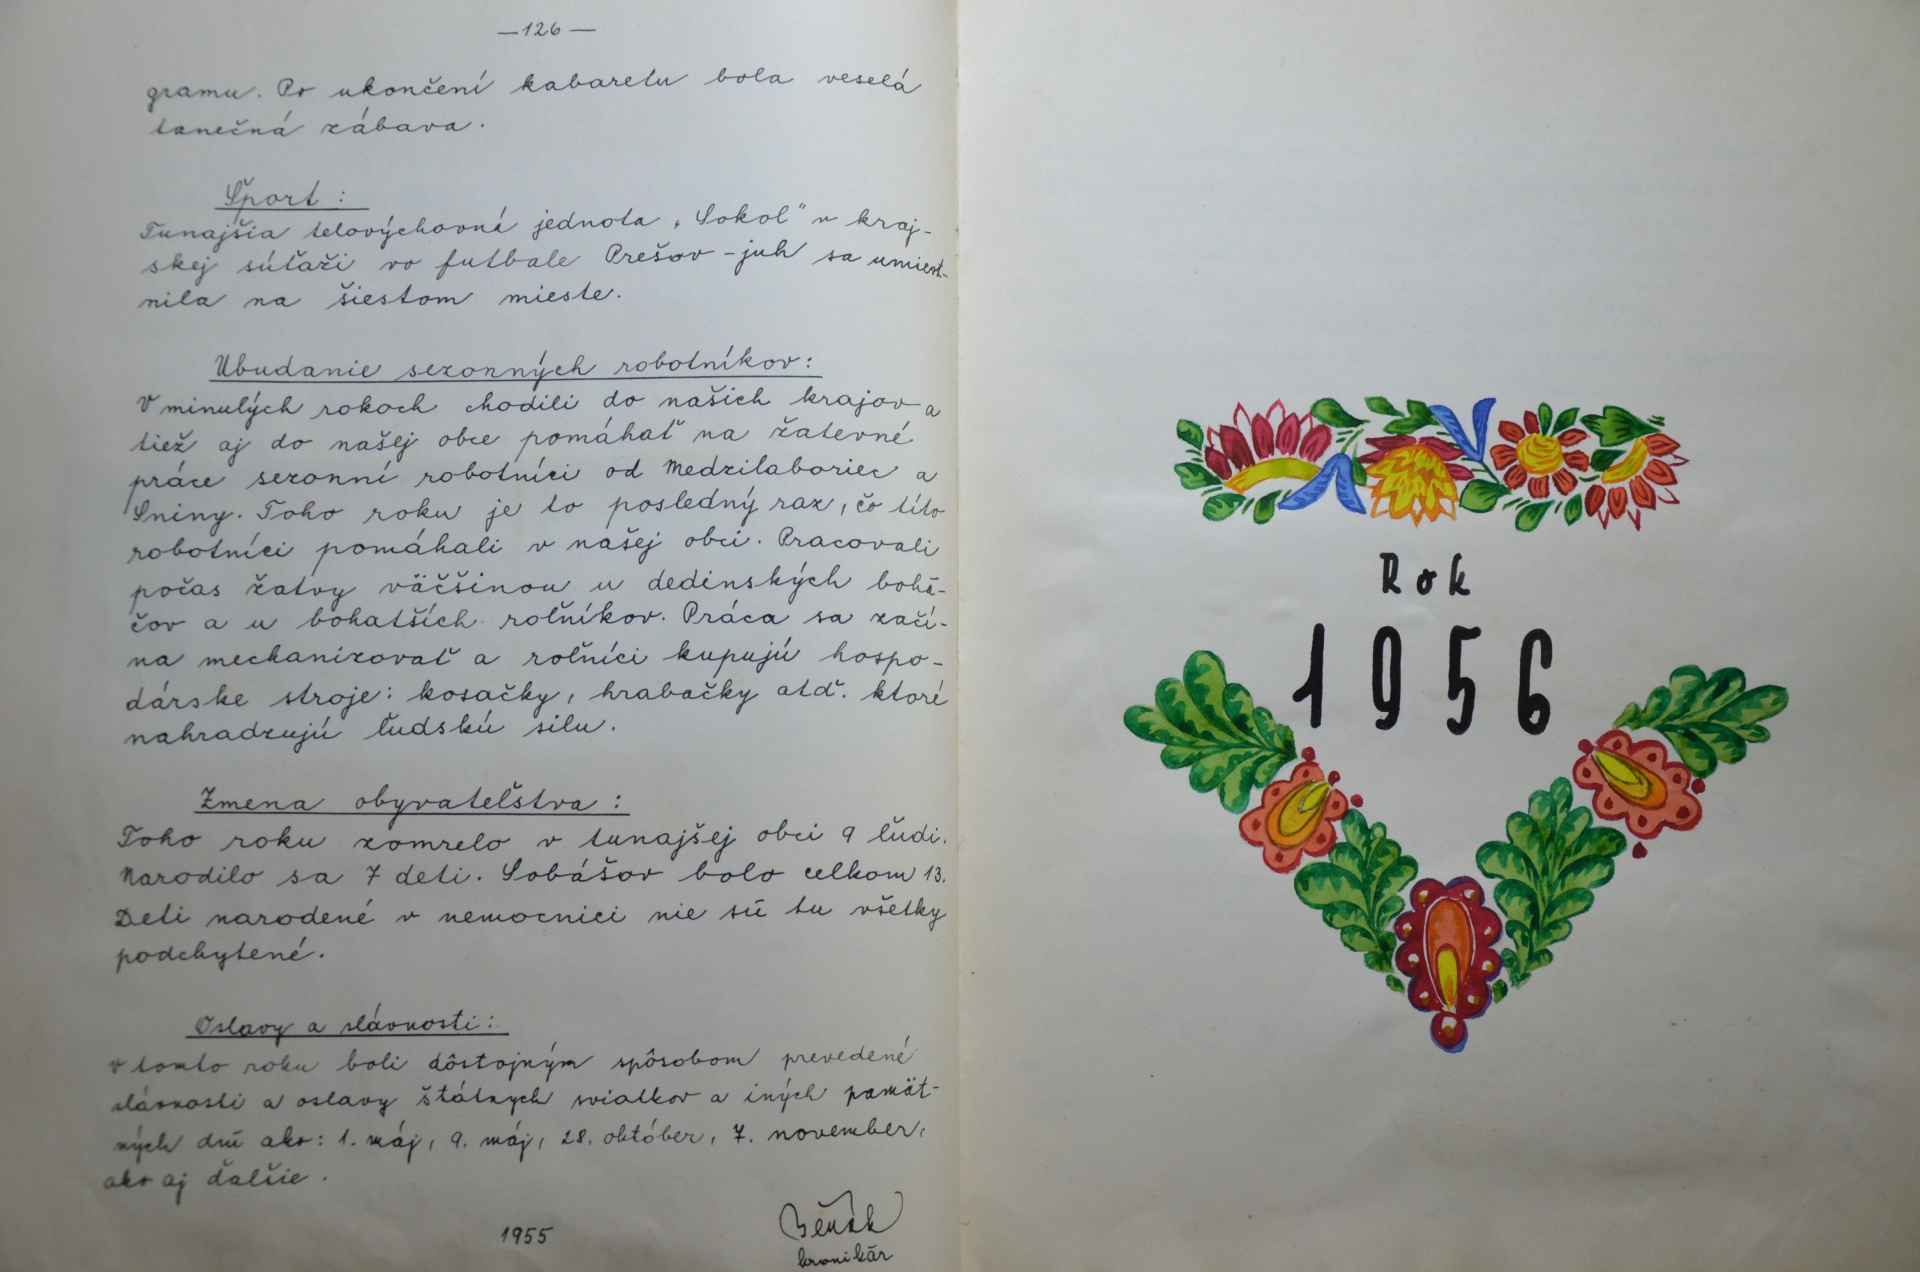 —126—
gramu. Po ukončení kabaretu bola veselá
tanečná zábava.
Šport:
Tunajšia telovýchovná jednota „Sokol" v kraj-
skej súťaži vo futbale Prešov-juh sa umiest-
nila na šiestom mieste.
Ubudanie sezonných robotníkov:
V minulých rokoch chodili do našich krajov a
tiež aj do našej obce pomáhať na žatevné
práce sezonní robotníci od Medzilaboriec a
Sniny. Toho roku je to posledný raz, čo títo
robotníci pomáhali v našej obci. Pracovali
počas žatvy väčšinou u dedinských bohá-
čov a u bohatších roľníkov. Práca sa začí-
na mechanizovať a roľníci kupujú hospo-
dárske stroje: kosačky, hrabačky atď. ktoré
nahradzujú ľudskú silu.
Zmena obyvateľstva:
Toho roku zomrelo v tunajšej obci 9 ľudí.
Narodilo sa 7 detí. Sobášov bolo celkom 13.
Deti narodené v nemocnici nie sú tu všetky
podchytené.
Oslavy a slávnosti:
v tomto roku boli dôstojným spôsobom prevedené
slávnosti a oslavy štátnych sviatkov a iných pamät-
ných dní ako: 1. máj, 9. máj, 28. október, 7. november,
ako aj ďalšie.
1955
kronikár
Rok
1956